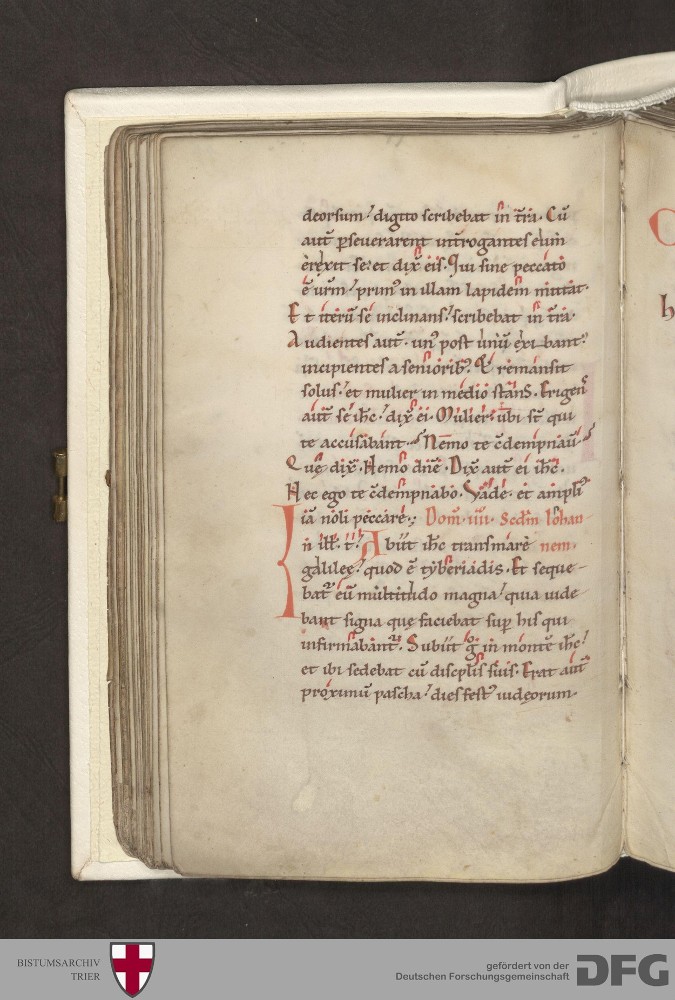 deorsum digito scribebat in t̄ra. Cū
aut̄ ꝑseuerarent int̄rogantes eum
erexit se. et dix̄ eis. Qui sine peccato
ē ur̄m primꝰ in illam lapidem mittat.
Et iterū se inclinans scribebat in t̄ra.
Audientes aut̄. unꝰ post unū exi bant
incipientes a seniorib; Et remansit
solus et mulier in medio stans. Erigenˢ
aut̄ se ih̄c dix̄ ei. Mulier ubi st̄ qui
te accusabant. Nemo te c̄dempnauῑ
Que dix̄. Nemo dn̄e. Dix̄ aut̄ ei ih̄c.
Nec ego te c̄dempnabo. Vade. et ampliꝰ
iā noli peccare. Dom̄. iiii. Scdm̄ Iohan
n ill̄. t̄. Abiit ih̄c transmare nem.
galileę quod ē tyberiadis. Et seque-
bat̄ eū multitudo magna quia uide
bant signa quę faciebat sup̄ his qui
infirmabant̄. Subiit gͦ in monte ih̄c
et ibi sedebat cū discplīs suis. Erat aut̄
proximū pascha dies festꝰ iudeorum.
C
h
BISTUMSARCHIV
TRIER
gefördert von der
Deutschen Forschungsgemeinschaft
DFG